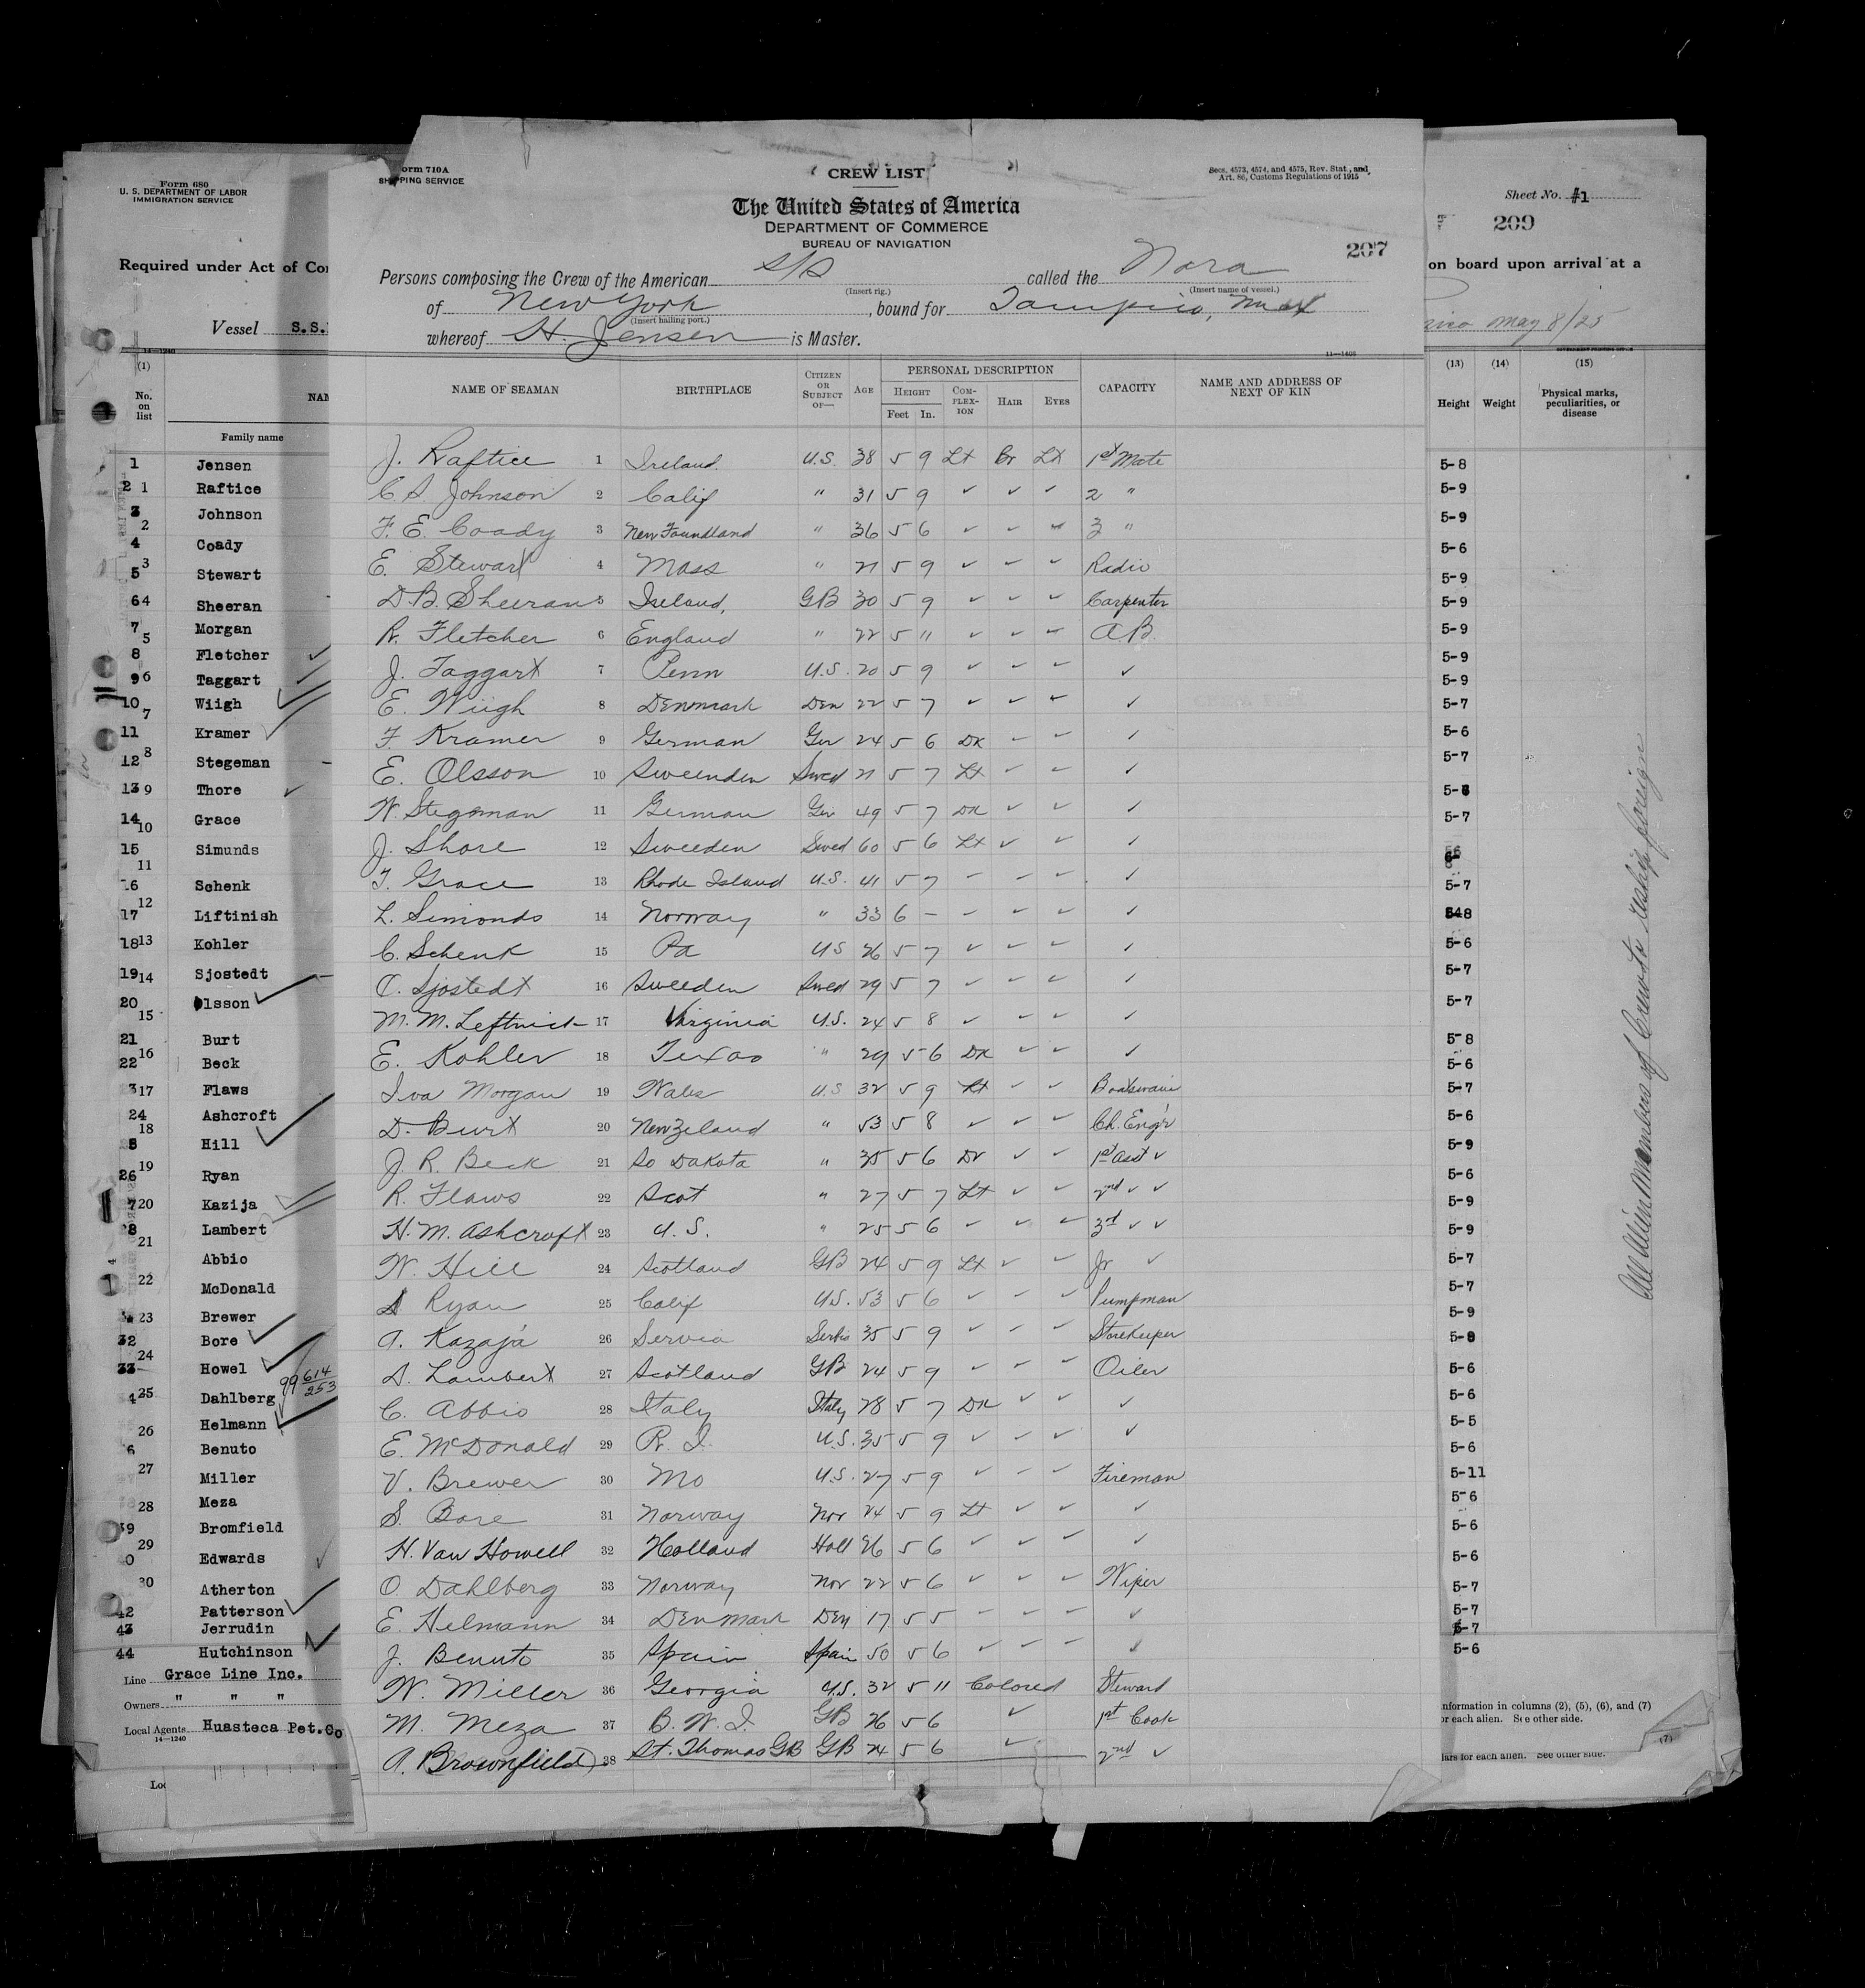 Form 680
U. S. DEPARTMENT OF LABOR
IMMIGRATION SERVICE
Required under Act of Con
Vessel S.S.
14—1240
(1)
No. on list
NAM
Family name
1 Jensen
2 1 Raftice
3 2 Johnson
4 Coady
5 3 Stewart
6 4 Sheeran
7 5 Morgan
8 Fletcher
9 6 Taggart
10 7 Wiigh
11 Kramer
12 8 Stegeman
13 9 Thore
14 10 Grace
15 11 Simunds
16 Schenk
17 12 Liftinish
18 13 Kohler
19 14 Sjostedt
20 15 Olsson
21 Burt
22 16 Beck
3 17 Flaws
24 18 Ashcroft
5 Hill
26 19 Ryan
7 20 Kazija
8 21 Lambert
Abbio
22 McDonald
23 Brewer
32 Bore
33 24 Howel
4 25 Dahlberg
99 614/253
26 Helmann
6 Benuto
27 Miller
28 Meza
39 Bromfield
0 29 Edwards
30 Atherton
42 Patterson
43 Jerrudin
44 Hutchinson
Line Grace Line Inc.
Owners " " "
Local Agents Huasteca Pet.Co
14—1240
Form 710A
SHIPPING SERVICE
CREW LIST
Secs. 4573, 4574, and 4575, Rev. Stat., and
Art. 86, Customs Regulations of 1915
The United States of America
DEPARTMENT OF COMMERCE
BUREAU OF NAVIGATION
207
Persons composing the Crew of the American S/S called the Nora
(Insert rig.) (Insert name of vessel.)
of New York, bound for Tampico, Mex
(Insert hailing port.)
whereof H. Jensen is Master.
11—1405
NAME OF SEAMAN BIRTHPLACE CITIZEN OR SUBJECT OF— AGE PERSONAL DESCRIPTION CAPACITY NAME AND ADDRESS OF NEXT OF KIN
HEIGHT COMPLEXION HAIR EYES
Feet In.
J. Raftice 1 Ireland U.S. 38 5 9 Lt Br Lt 1st Mate
C S Johnson 2 Calif " 31 5 9 ✓ ✓ ✓ 2 "
F. E. Coady 3 New Foundland " 36 5 6 ✓ ✓ ✓ 3 "
E. Stewart 4 Mass " 21 5 9 ✓ ✓ ✓ Radio
D. B. Sheeran 5 Ireland, GB 30 5 9 ✓ ✓ ✓ Carpenter
R. Fletcher 6 England " 22 5 11 ✓ ✓ ✓ A.B.
J. Taggart 7 Penn U.S. 20 5 9 ✓ ✓ ✓ ✓
E. Wiigh 8 Denmark Den 22 5 7 ✓ ✓ ✓ ✓
F Kramer 9 German Ger 24 5 6 DK ✓ ✓ ✓
E. Olsson 10 Sweenden Swed 21 5 7 Lt ✓ ✓ ✓
W. Stegeman 11 German Ger 49 5 7 DK ✓ ✓ ✓
J. Shore 12 Sweeden Swed 60 5 6 Lt ✓ ✓ ✓
T. Grace 13 Rhode Island U.S. 41 5 7 ✓ ✓ ✓ ✓
L. Simonds 14 Norway " 33 6 – ✓ ✓ ✓ ✓
C. Schenk 15 Pa US 26 5 7 ✓ ✓ ✓ ✓
O. Sjostedt 16 Sweeden Swed 29 5 7 ✓ ✓ ✓ ✓
M. M. Leftwich 17 Virginia U.S. 24 5 8 ✓ ✓ ✓ ✓
E. Kohler 18 Texas " 29 5 6 DK ✓ ✓ ✓
Iva Morgan 19 Wales U.S 32 5 9 Lt ✓ ✓ Boatswain
D. Burt 20 New Zeland " 53 5 8 ✓ ✓ ✓ Ch. Eng'r
J. R. Beck 21 So Dakota " 35 5 6 DK ✓ ✓ 1st Asst ✓
R. Flaws 22 Scot " 27 5 7 Lt ✓ ✓ 2nd ✓ ✓
H. M. Ashcroft 23 U. S. " 25 5 6 ✓ ✓ ✓ 3rd ✓ ✓
W. Hill 24 Scotland GB 24 5 9 Lt ✓ ✓ Jr ✓
Ryan 25 Calif U.S. 53 5 6 ✓ ✓ ✓ Pumpman
A. Kazaja 26 Servia Serbs 35 5 9 ✓ ✓ ✓ Storekeeper
D. Lambert 27 Scotland GB 24 5 9 ✓ ✓ ✓ Oiler
C. Abbio 28 Italy Italy 28 5 7 DK ✓ ✓ ✓
E. McDonald 29 R. I. U.S. 35 5 9 ✓ ✓ ✓ ✓
V. Brewer 30 Mo U.S. 27 5 9 ✓ ✓ ✓ Fireman
S. Bore 31 Norway Nor 24 5 9 Lt ✓ ✓ ✓
H. Van Howell 32 Holland Holl 26 5 6 ✓ ✓ ✓ ✓
O. Dahlberg 33 Norway Nor 22 5 6 ✓ ✓ ✓ Wiper
E. Helmann 34 Denmark Den 17 5 5 ✓ ✓ ✓ ✓
J. Benuto 35 Spain Spain 50 5 6 ✓ ✓ ✓ ✓
W. Miller 36 Georgia U.S. 32 5 11 Colored Steward
M. Meza 37 B. W. I. GB 26 5 6 ✓ 1st Cook
A. Brownfield 38 St. Thomas GB GB 24 5 6 ✓ 2nd ✓
Sheet No. #1
209
on board upon arrival at a
May 8/25
(13) (14) (15)
Height Weight Physical marks, peculiarities, or disease
5-8
5-9
5-9
5-6
5-9
5-9
5-9
5-9
5-9
5-7
5-6
5-7
5-6
5-7
6-
5-7
5-8
5-6
5-7
5-7
5-8
5-6
5-7
5-6
5-9
5-6
5-9
5-9
5-7
5-7
5-9
5-9
5-6
5-6
5-5
5-6
5-11
5-6
5-6
5-6
5-7
5-7
5-7
5-6
All Alien Members of Crew to reship foreign
information in columns (2), (5), (6), and (7)
or each alien. See other side.
(7)
lars for each alien. See other side.
Loc